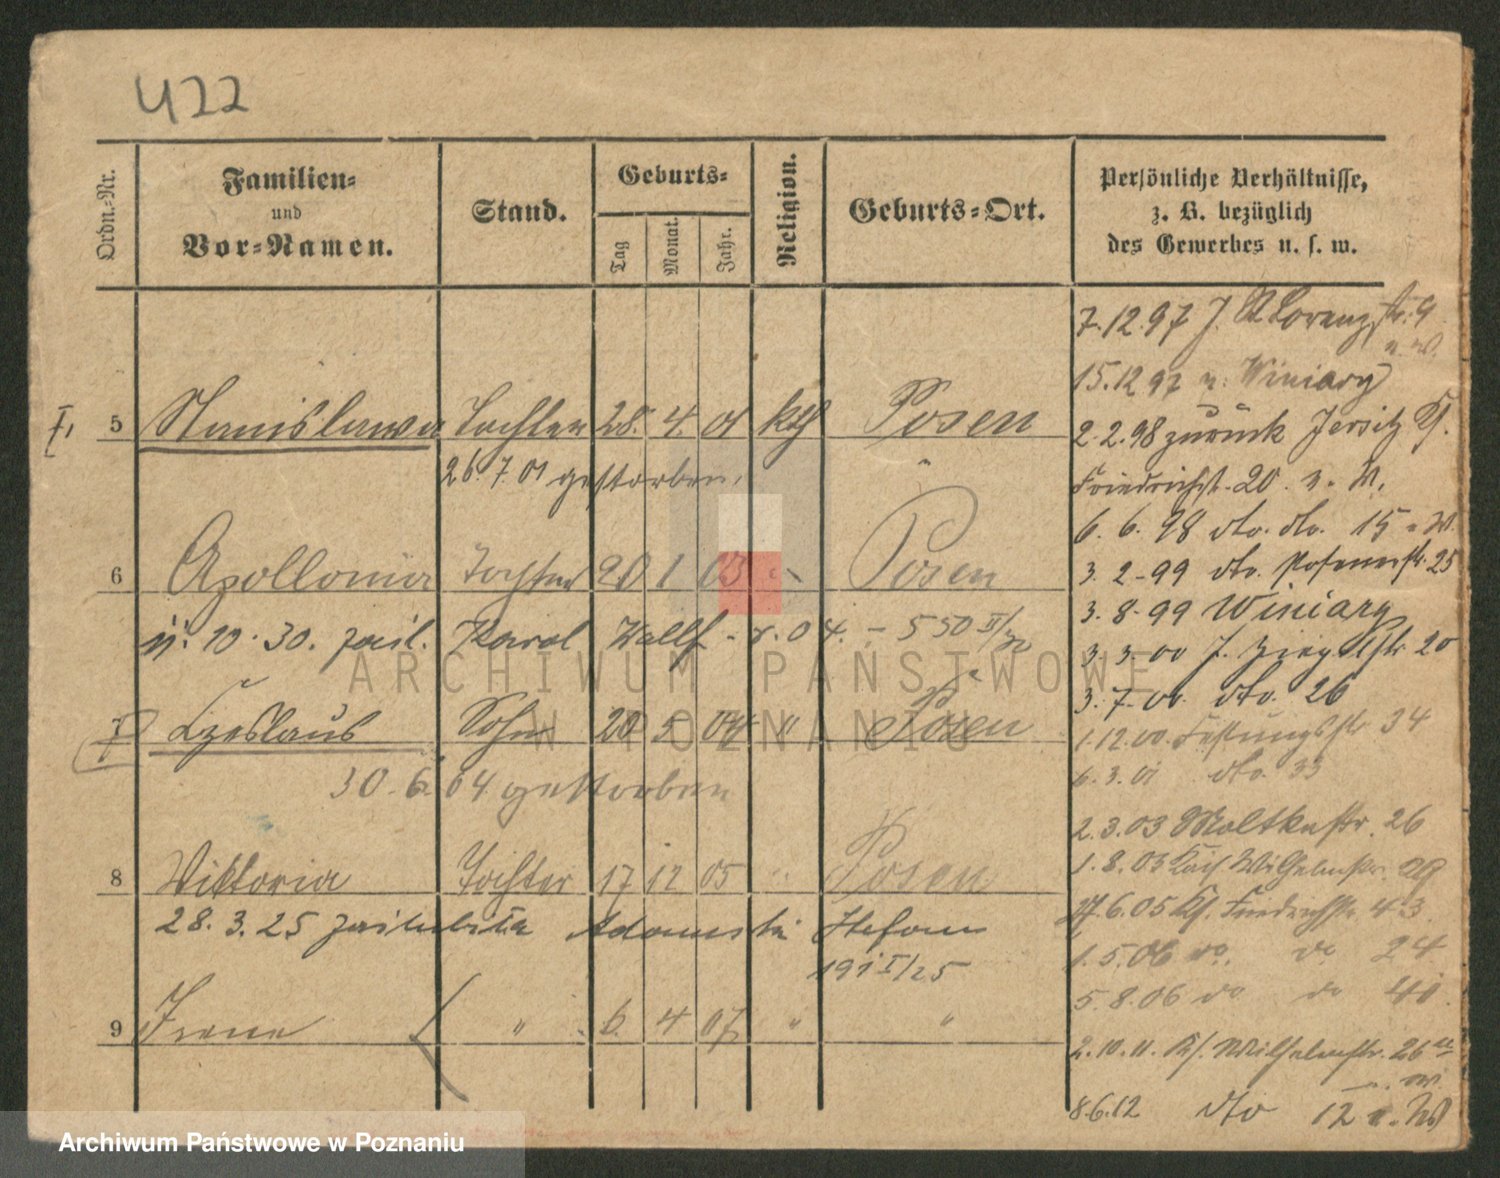 422
Ordn.-Nr.
Familien-
und
Vor-Namen.
Stand.
Geburts-
Tag
Monat.
Jahr.
Religion.
Geburts-Ort.
Persönliche Verhältnisse,
z. B. bezüglich
des Gewerbes u. s. w.
7.12.97 J. St Lorenzstr. 9
15.12 97 n. Winiary
5 Stanislawa Tochter 28. 4. 01 kth Posen
2.2.98 zurück Jersitz Kf.
26.7.01 gestorben.
Friedrichst. 20
6. 6. 98 dto. dto. 15
6 Apollonia Tochter 20 1 03 Posen
3. 2-99 dto. Posenerstr. 25
3. 8-99 Winiary
10.30. Karol
3. 3. 00 J. 20
3.7.00. dto. 26
7 Czeslaus Sohn 20 5 04 " Posen
1.12.00. Festungsstr 34
30.6.04 gestorben
6.3.01 dto. 33
2.3.03 Moltkestr. 26
8 Viktoria Tochter 17 12 05 Posen
1.8.03 Wilhelmstr.
28.3.25 Stefan
6.05 Kf. Friedrichstr. 43.
1.5.06 do. do 24
191 I/25
5.8.06 do do
9 Irene " 6. 4 07 " "
2.10.11. Kf. Wilhelmstr. 26
8.6.12 dto 12
ARCHIWUM PAŃSTWOWE
W POZNANIU
Archiwum Państwowe w Poznaniu